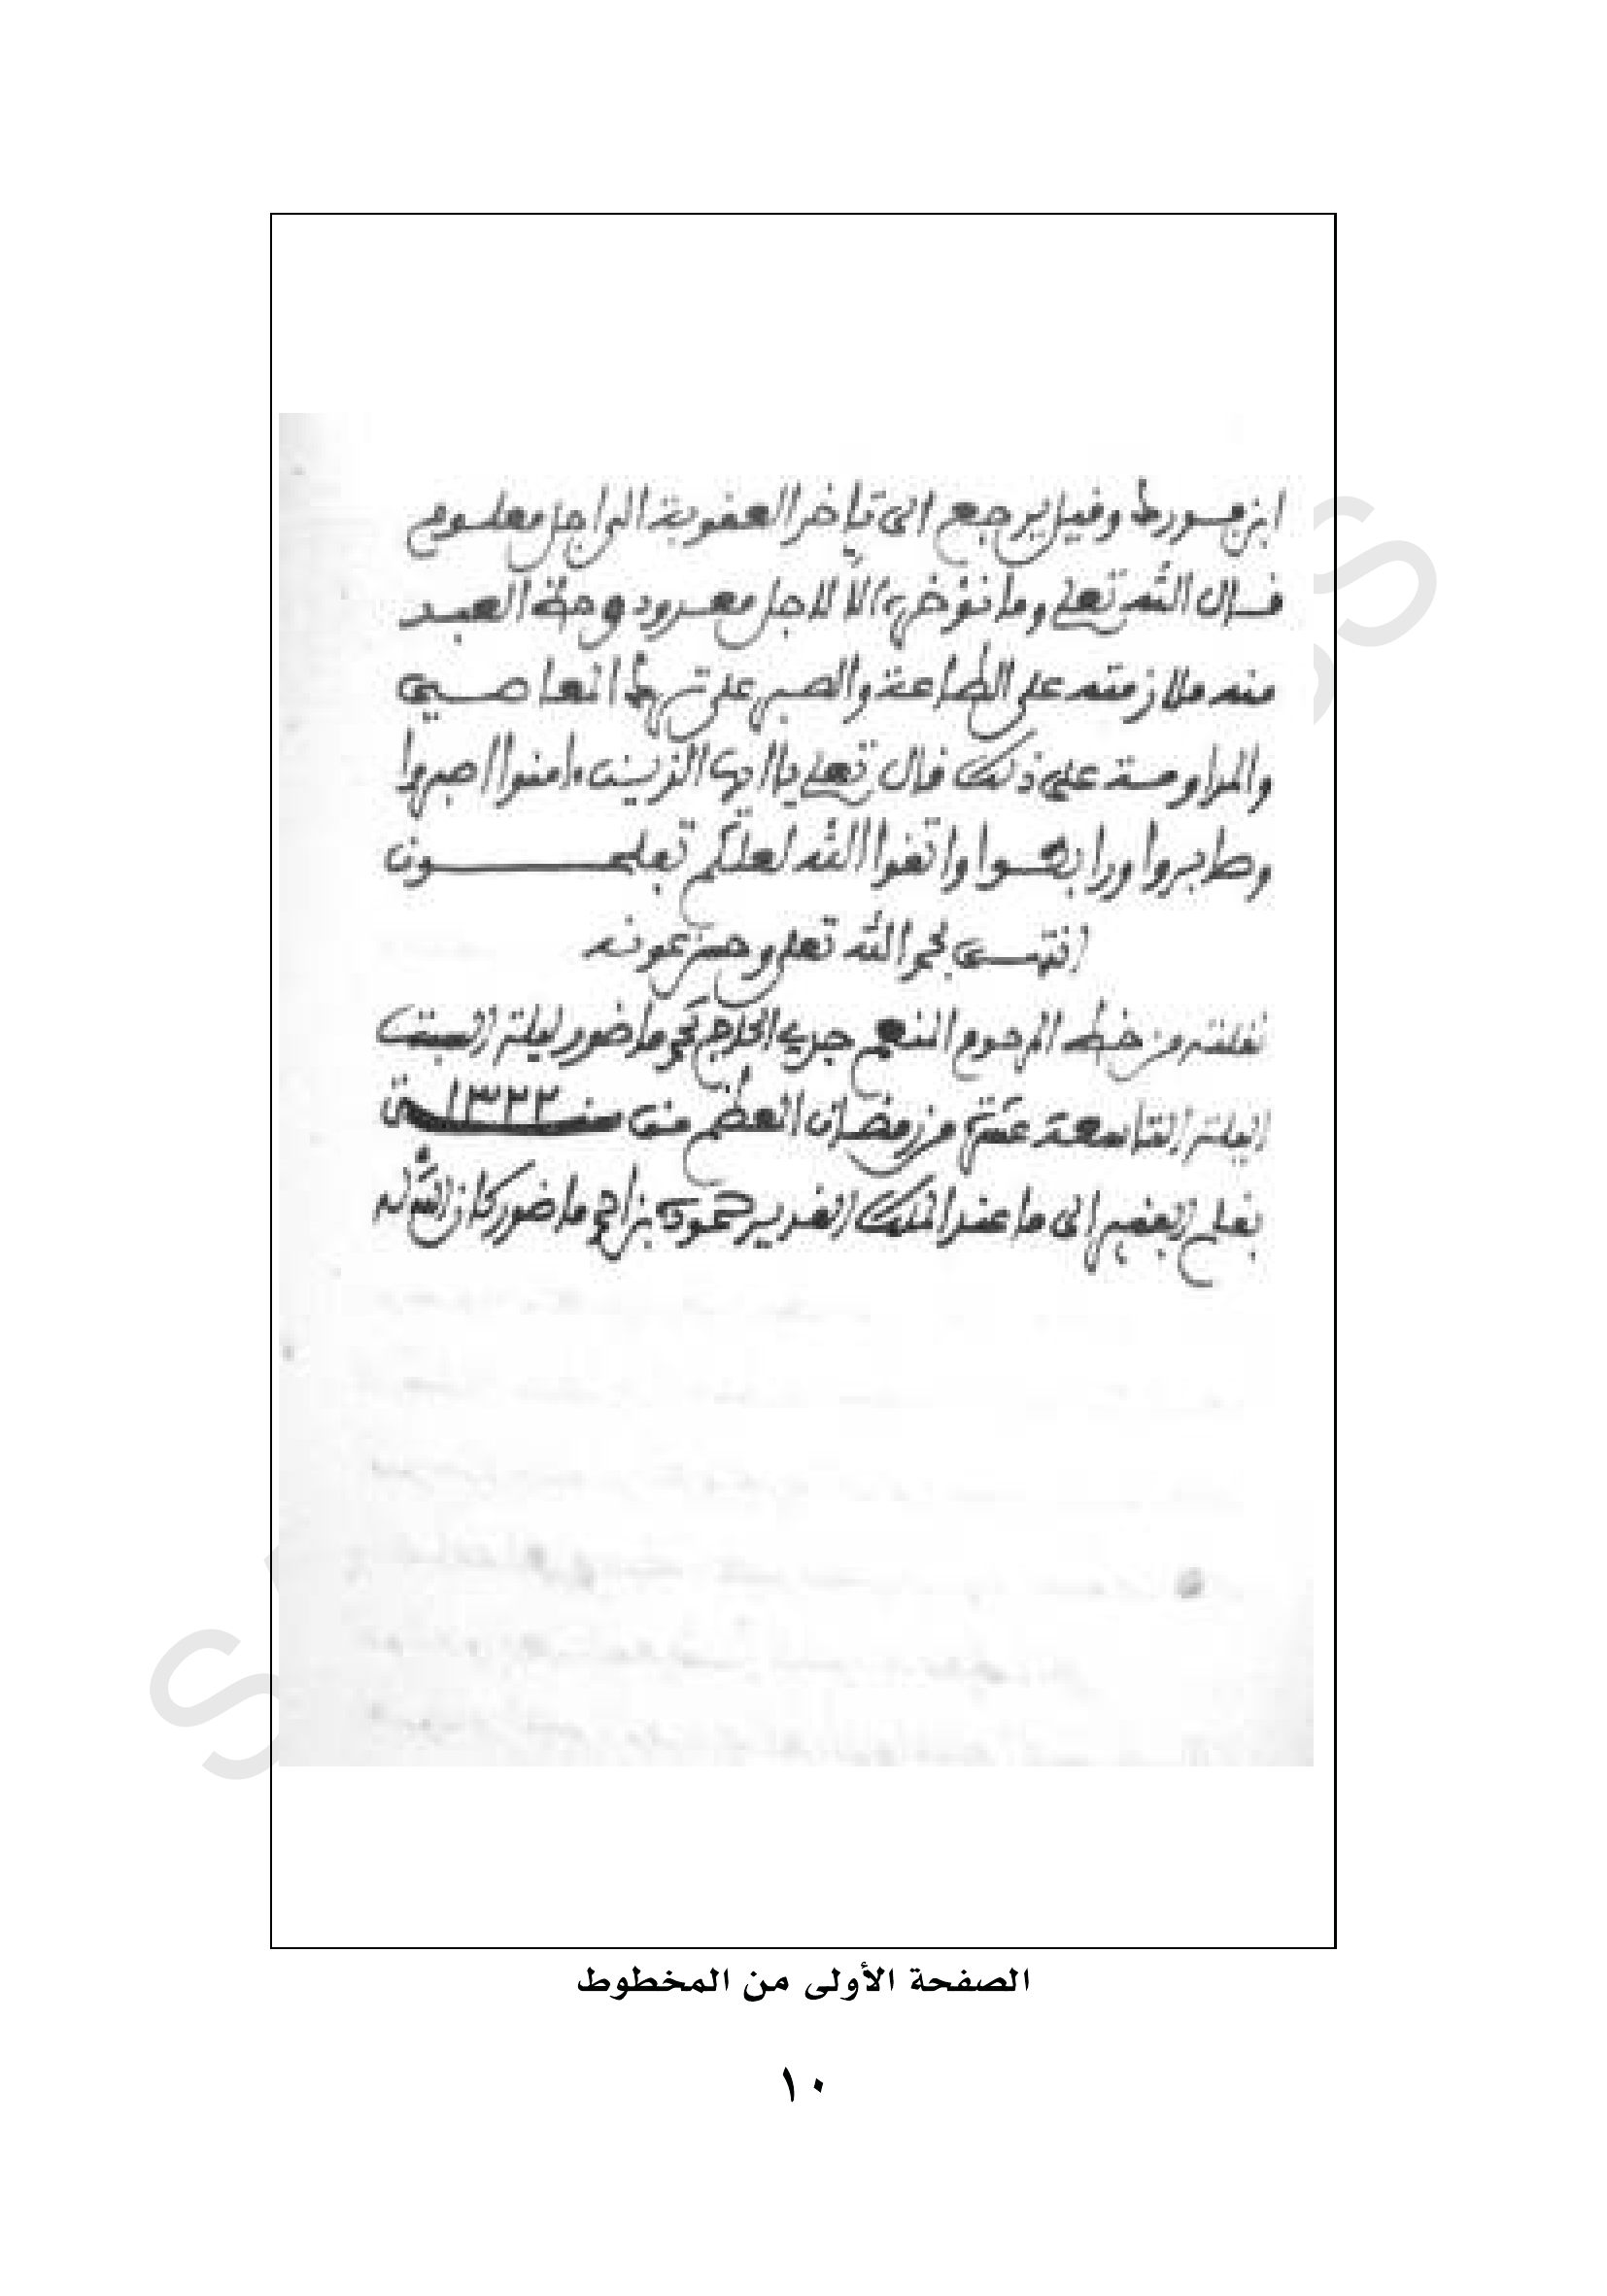 ابن فورك وقيل يرجع الى تاخر العقوبة الى اجل معلوم
قال الله تعلى وما نؤخره الا لاجل معدود وحظ العبد
منه ملازمته على الطاعة والصبر على ترك المعاصي
والمداومة على ذلك قال تعلى ياايها الذين ءامنوا اصبروا
وصابروا ورابطوا واتقوا الله لعلكم تفلحون
انتهى بحمد الله تعلى وحسن عونه
نقلته من خط المرحوم المنعم جدي الحاج ماضور ليلة السبت
الليلة التاسعة عشر من رمضان المعظم من سنة ١٣٢٢
بقلم الفقير الى ما عند الملك القدير حمودة بن ماضور كان الله له
الصفحة الأولى من المخطوط
١٠